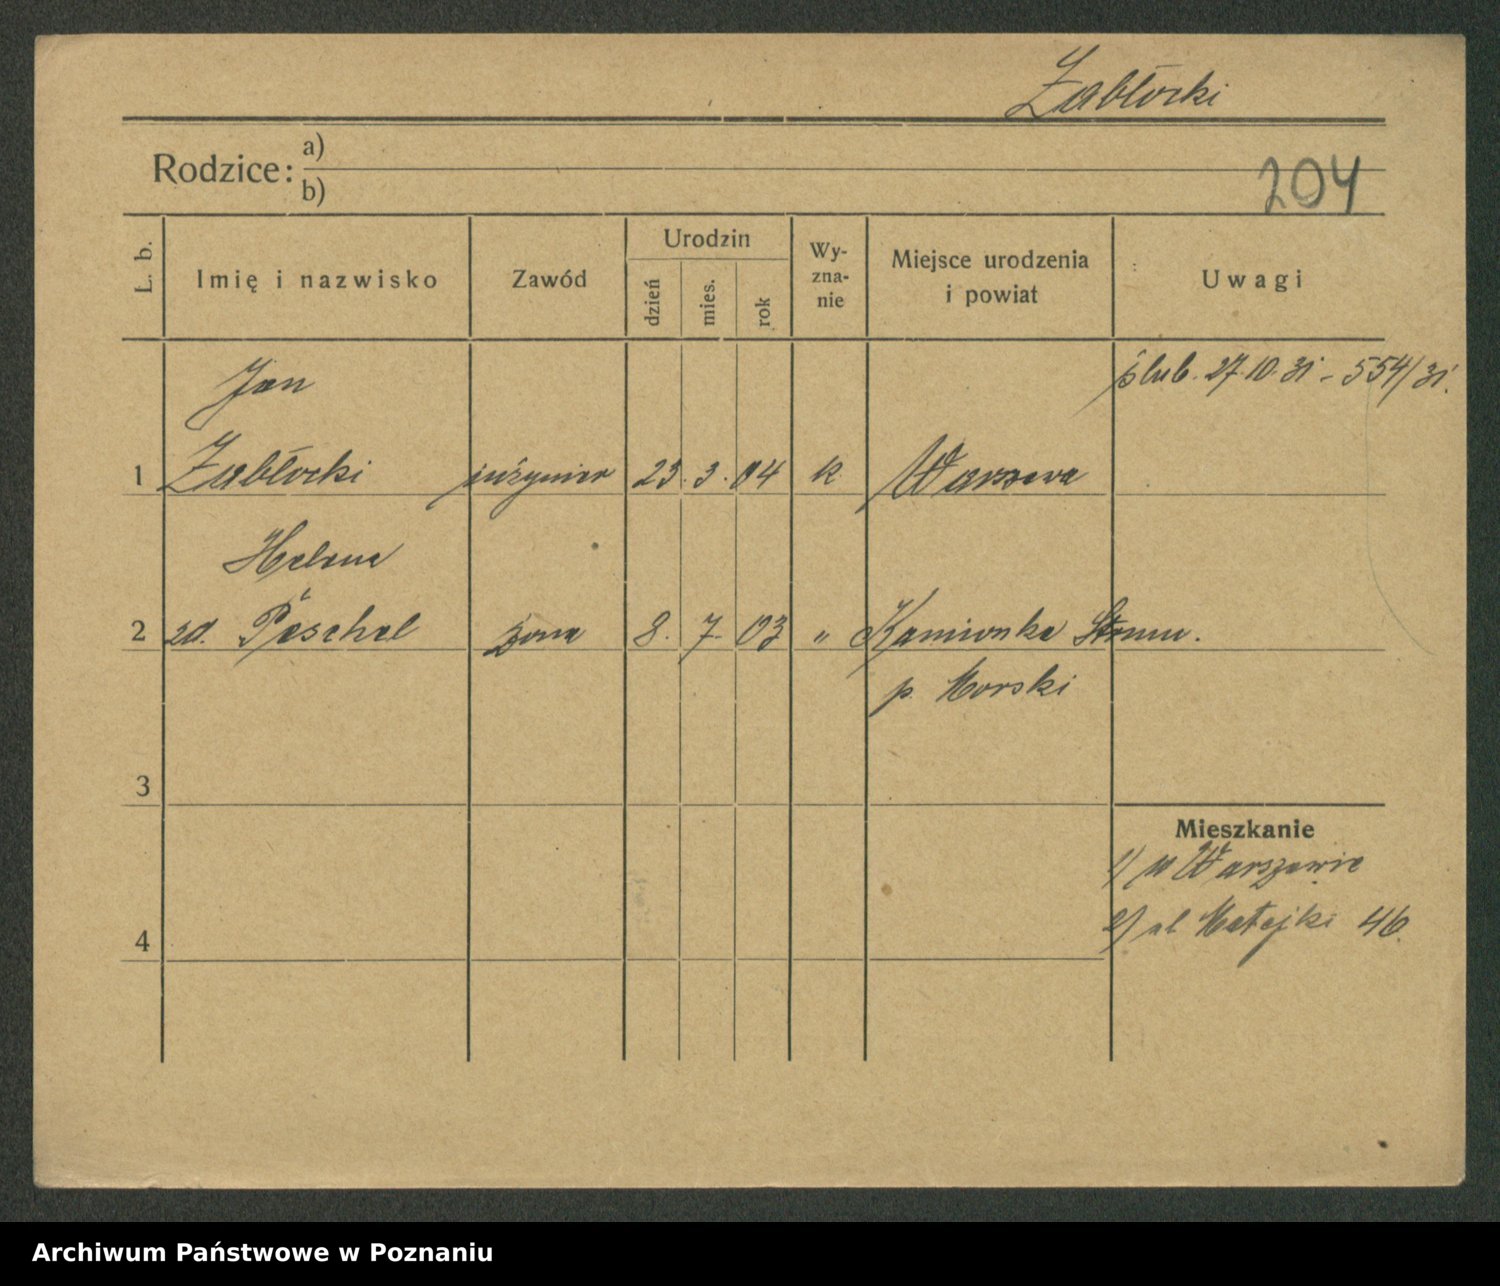 Zabłocki
Rodzice: a)
b)
204
L. b.
Imię i nazwisko
Zawód
Urodzin
dzień
mies.
rok
Wy-
zna-
nie
Miejsce urodzenia
i powiat
Uwagi
Jan
ślub. 27.10.31 - 554/31.
1 Zabłocki inżynier 23. 3. 04 k Warszawa
Helena
2 zd. Peschel żona 8. 7. 03 " Kamionka Strum.
p. Morski
3
Mieszkanie
1) w Warszawie
2) ul Matejki 46.
4
Archiwum Państwowe w Poznaniu